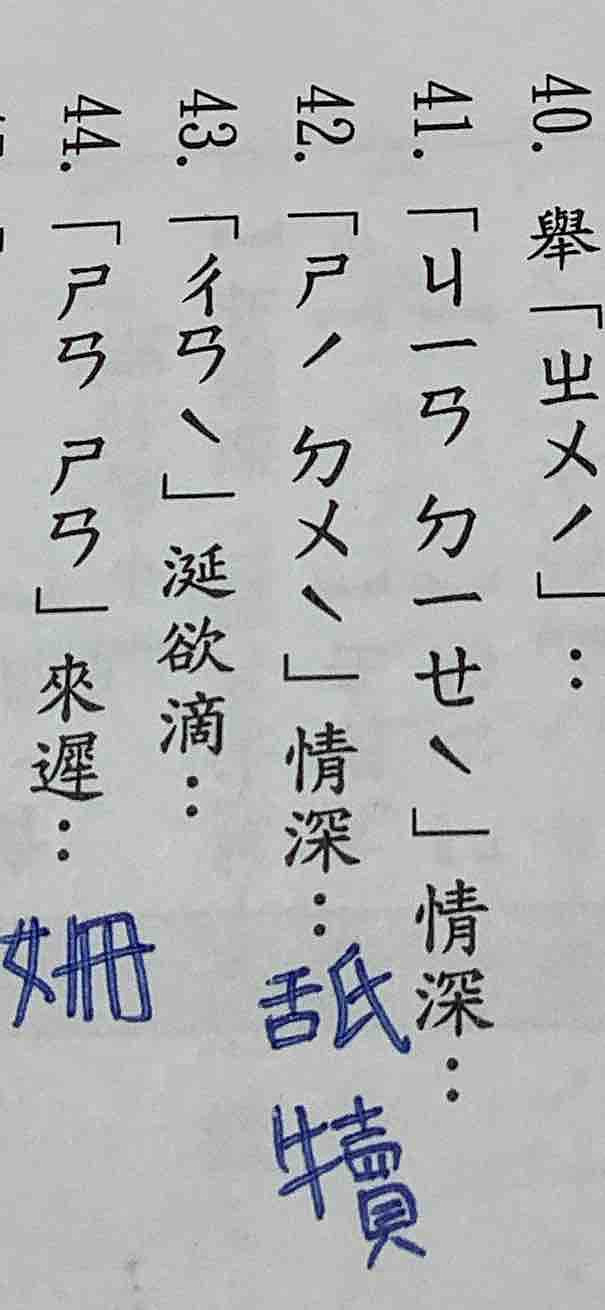 40. 舉「ㄓㄨˊ」：
41.「ㄐㄧㄢ ㄉㄧㄝˋ」情深：
42.「ㄕˊ ㄉㄨˋ」情深：舐犢
43.「ㄔㄢˋ」涎欲滴：
44.「ㄕㄢ ㄕㄢ」來遲：姍